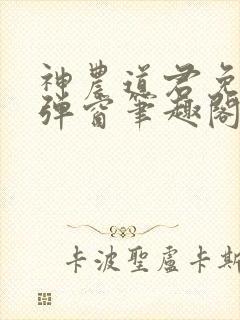 神農道君免
弹窗筆趣閣
卡波聖盧卡斯